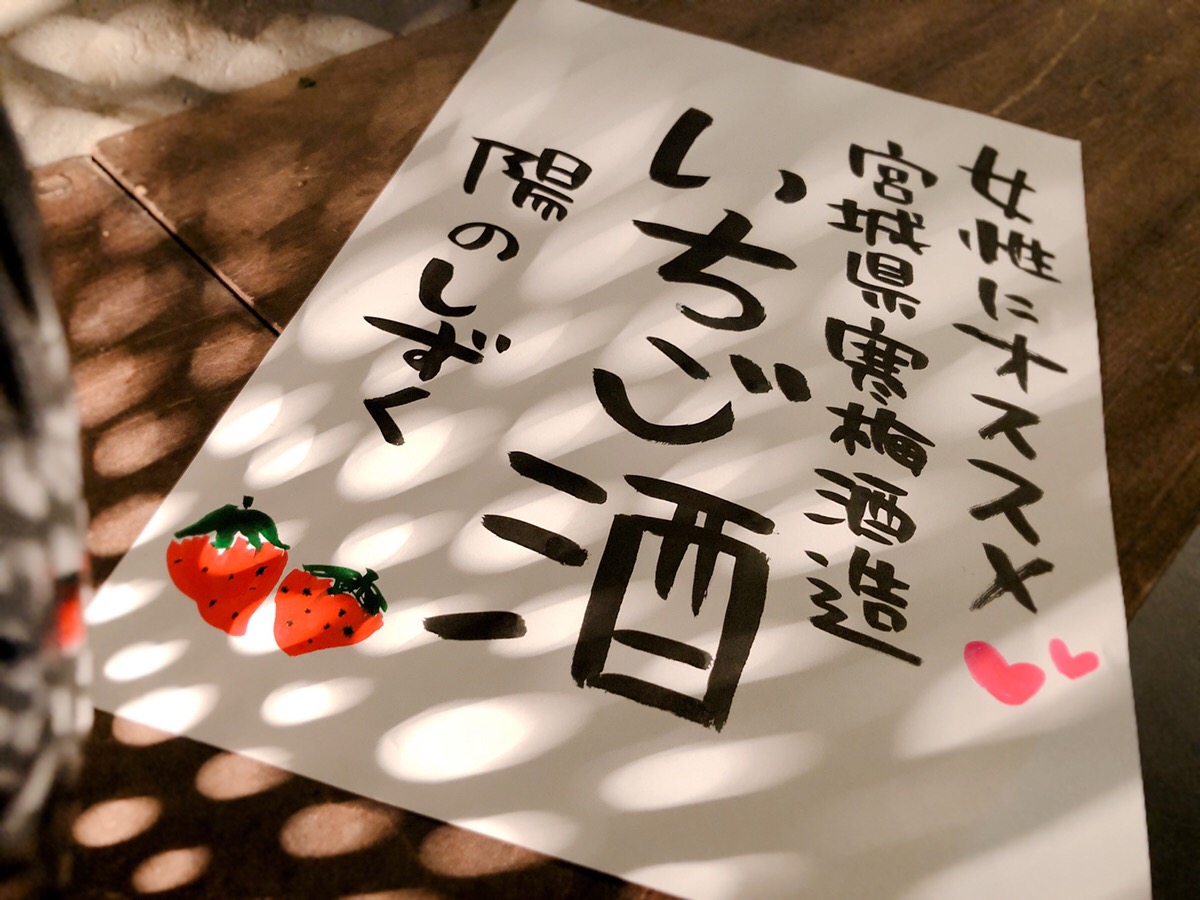 女性にオススメ
宮城県寒梅酒造
いちご酒
陽のしずく